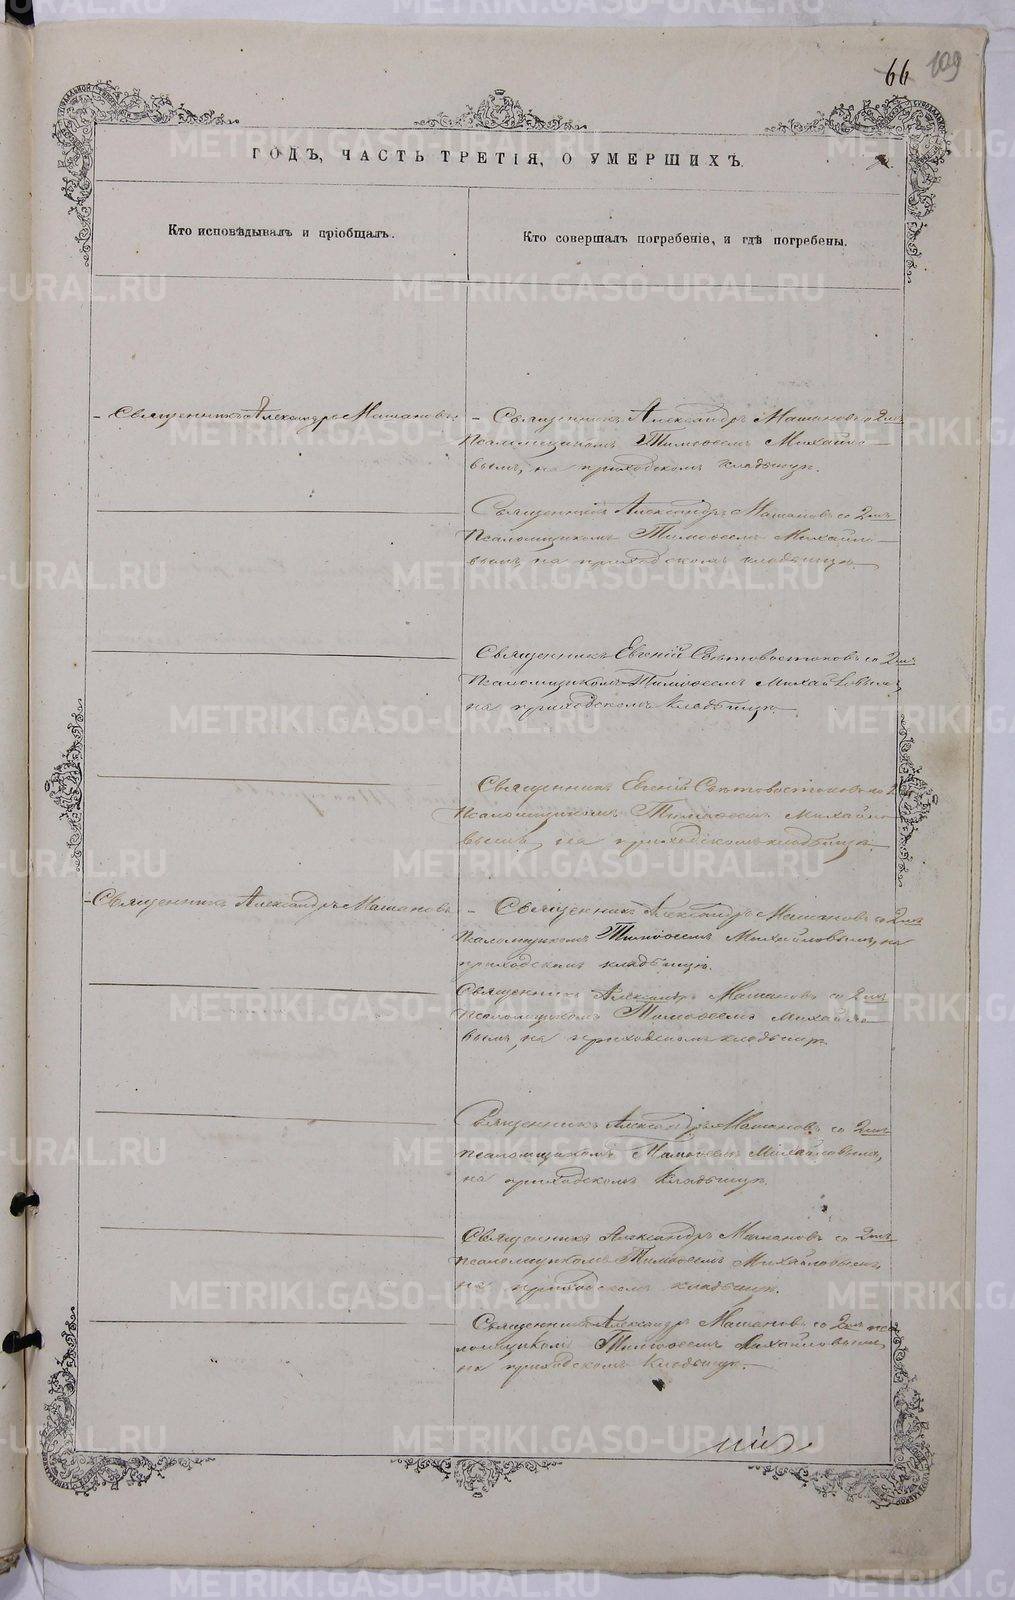 66 109
ГОДЪ, ЧАСТЬ ТРЕТІЯ, О УМЕРШИХЪ.
Кто исповѣдывалъ и пріобщалъ.
Кто совершалъ погребеніе, и гдѣ погребены.
– Священникъ Александръ Машановъ
– Священникъ Александръ Машановъ со 2мъ
Псаломщикомъ Тимоѳеемъ Михайло–
вымъ, на приходскомъ кладбищѣ.
Священникъ Александръ Машановъ со 2мъ
Псаломщикомъ Тимоѳеемъ Михайло–
вымъ на приходскомъ кладбищѣ.
Священникъ Евгеній Свѣтовостоковъ со 2мъ
Псаломщикомъ Тимоѳеемъ Михайловымъ,
на приходскомъ кладбищѣ.
Священникъ Евгеній Свѣтовостоковъ со 2
Псаломщикомъ Тимоѳеемъ Михайло
вымъ, на приходскомъ кладбищѣ.
– Священникъ Александръ Машановъ
– Священникъ Александръ Машановъ со 2мъ
Псаломщикомъ Тимоѳеемъ Михайловымъ, на
приходскомъ кладбищѣ.
Священникъ Александръ Машановъ со 2мъ
Псаломщикомъ Тимоѳеемъ Михайло–
вымъ, на приходскомъ кладбищѣ.
Священникъ Александръ Машановъ со 2мъ
псаломщикомъ Тимоѳеемъ Михайловымъ,
на приходскомъ кладбищѣ.
Священникъ Александръ Машановъ со 2мъ
Псаломщикомъ Тимоѳеемъ Михайловымъ,
на приходскомъ кладбищѣ.
Священникъ Александръ Машановъ со 2мъ пса
ломщикомъ Тимоѳеемъ Михайловымъ,
на приходскомъ кладбищѣ.
METRIKI.GASO-URAL.RU